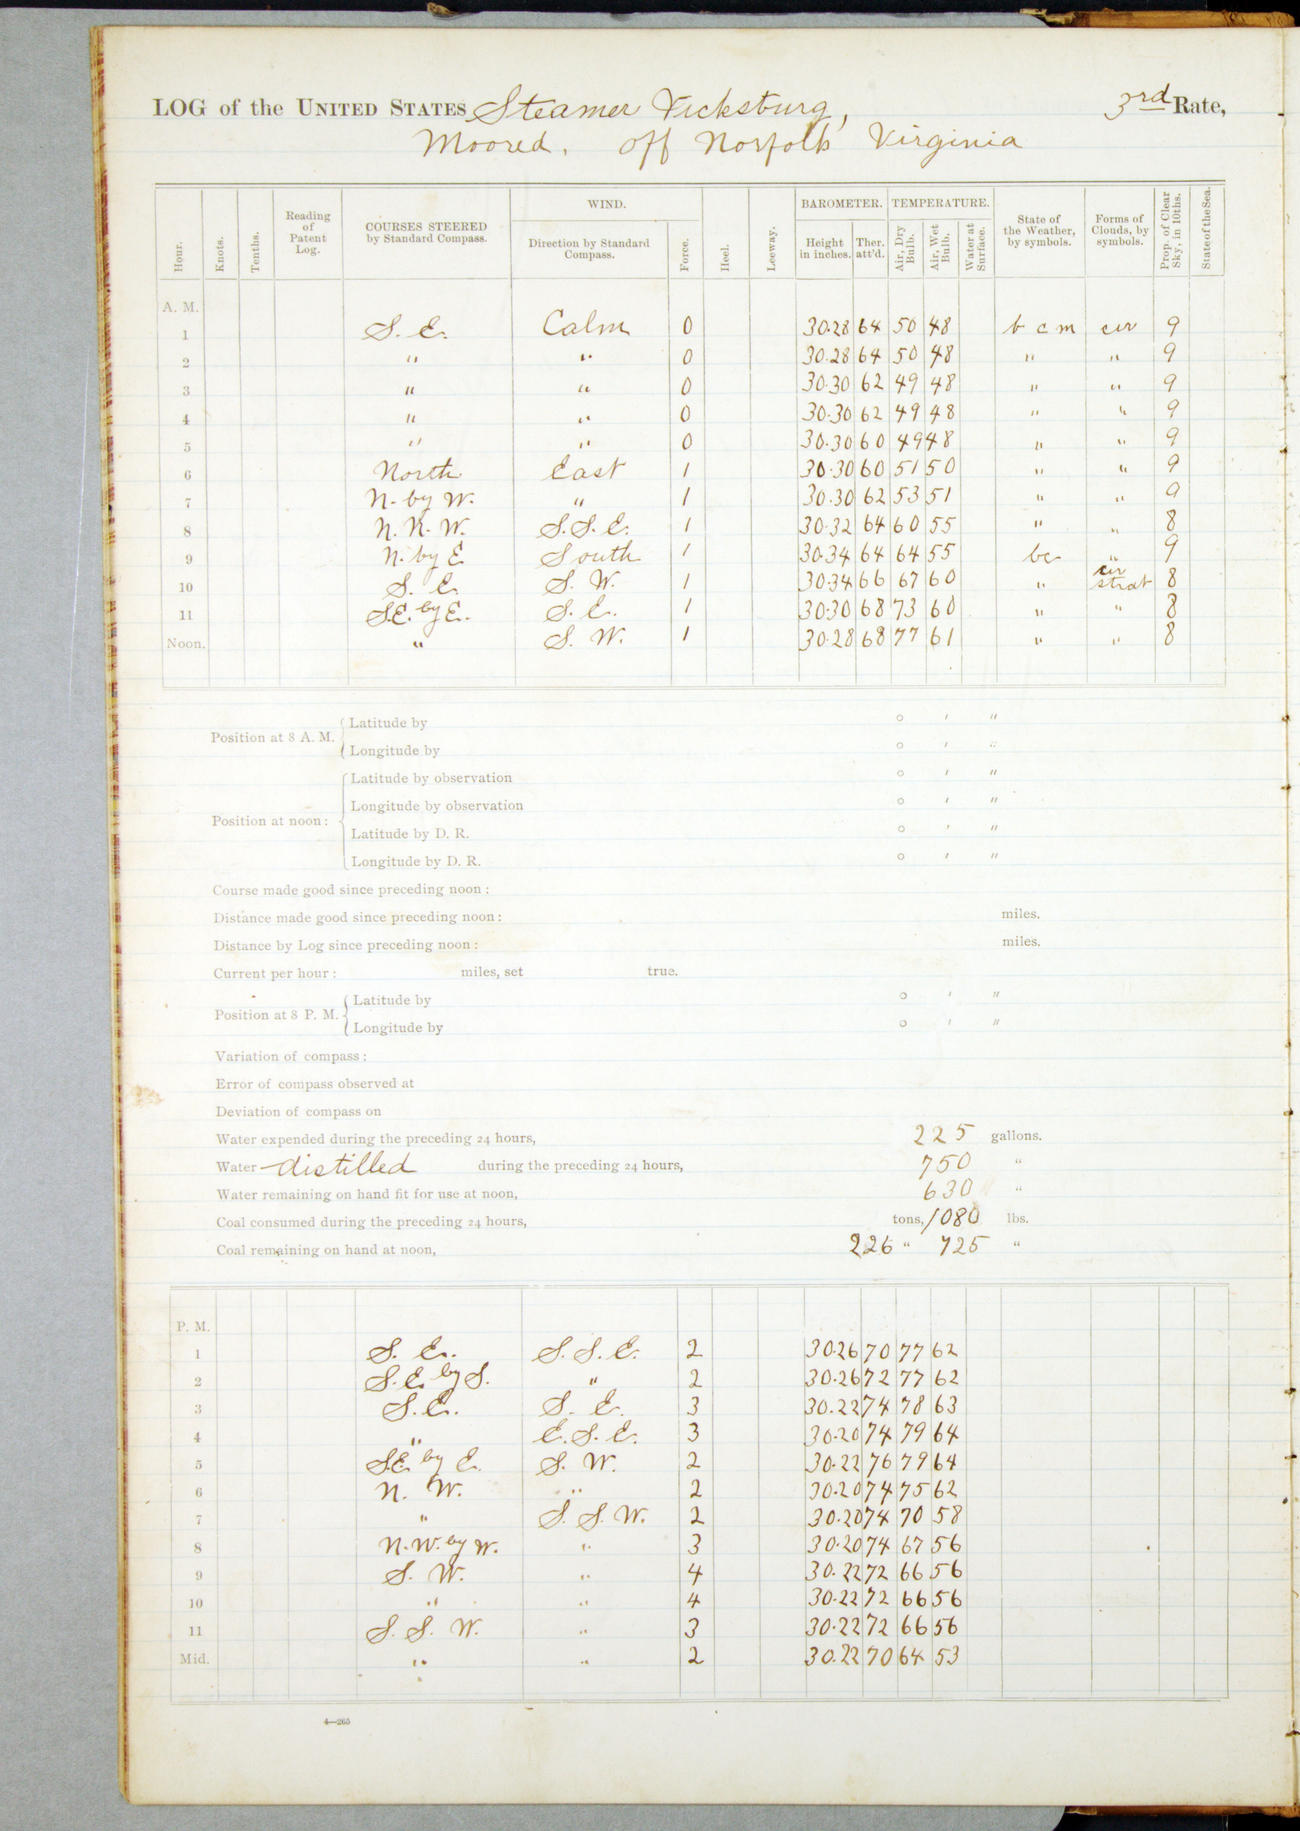 LOG of the UNITED STATES Steamer Vicksburg, 3rd Rate,
Moored, off Norfolk Virginia
Hour. Knots. Tenths. Reading of Patent Log. COURSES STEERED by Standard Compass. WIND. Direction by Standard Compass. Force. Heel. Leeway. BAROMETER. Height in inches. Ther. att'd. TEMPERATURE. Air, Dry Bulb. Air, Wet Bulb. Water at Surface. State of the Weather, by symbols. Forms of Clouds, by symbols. Prop. of Clear Sky, in 10ths. State of the Sea.
A. M.
1 S. E. Calm 0 30.28 64 50 48 b c m cir 9
2 " " 0 30.28 64 50 48 " " 9
3 " " 0 30.30 62 49 48 " " 9
4 " " 0 30.30 62 49 48 " " 9
5 " " 0 30.30 60 49 48 " " 9
6 North East 1 30.30 60 51 50 " " 9
7 N. by W. " 1 30.30 62 53 51 " " 9
8 N. N. W. S. S. E. 1 30.32 64 60 55 " " 8
9 N. by E South 1 30.34 64 64 55 bc " 9
10 S. E. S. W. 1 30.34 66 67 60 " cir strat 8
11 S.E. by E. S. E. 1 30.30 68 73 60 " " 8
Noon. " S. W. 1 30.28 68 77 61 " " 8
Position at 8 A. M. Latitude by ° ' "
Longitude by ° ' "
Position at noon: Latitude by observation ° ' "
Longitude by observation ° ' "
Latitude by D. R. ° ' "
Longitude by D. R. ° ' "
Course made good since preceding noon:
Distance made good since preceding noon: miles.
Distance by Log since preceding noon: miles.
Current per hour: miles, set true.
Position at 8 P. M. Latitude by ° ' "
Longitude by ° ' "
Variation of compass:
Error of compass observed at
Deviation of compass on
Water expended during the preceding 24 hours, 225 gallons.
Water distilled during the preceding 24 hours, 750 "
Water remaining on hand fit for use at noon, 630 "
Coal consumed during the preceding 24 hours, tons, 1080 lbs.
Coal remaining on hand at noon, 226 " 725 "
P. M.
1 S. E. S. S. E. 2 30.26 70 77 62
2 S. E. by S. " 2 30.26 72 77 62
3 S. E. S. E. 3 30.22 74 78 63
4 " E. S. E. 3 30.20 74 79 64
5 S.E. by E. S. W. 2 30.22 76 79 64
6 N. W. " 2 30.20 74 75 62
7 " S. S. W. 2 30.20 74 70 58
8 N. W. by W. " 3 30.20 74 67 56
9 S. W. " 4 30.22 72 66 56
10 " " 4 30.22 72 66 56
11 S. S. W. " 3 30.22 72 66 56
Mid. " " 2 30.22 70 64 53
4—265